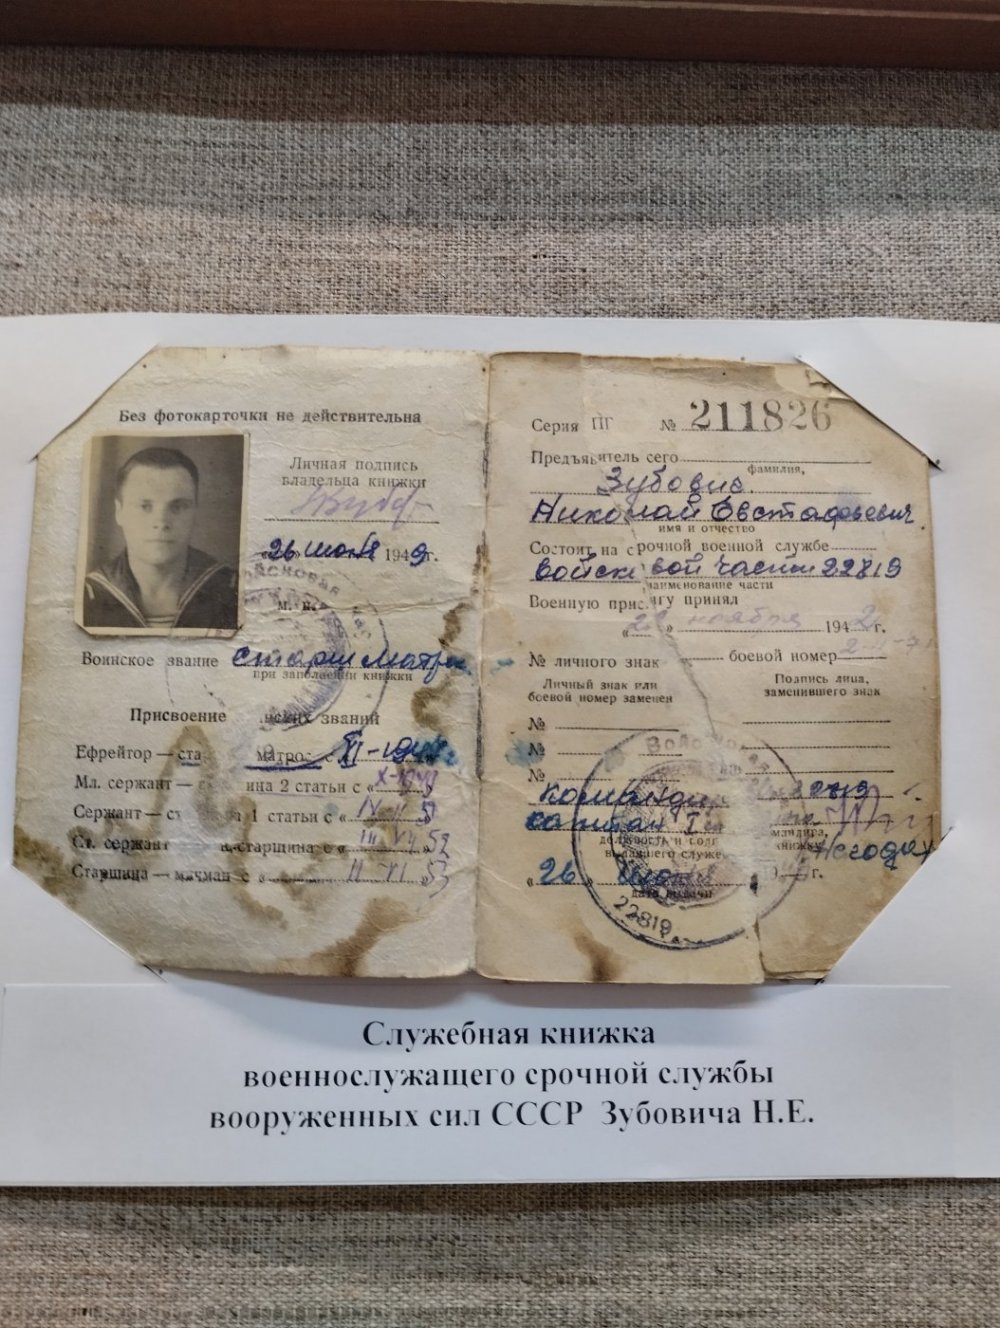 Без фотокарточки не действительна
Личная подпись
владельца книжки
«26» июня 1949г.
М. п.
Воинское звание старш матрос
при заполнении книжки
Присвоение воинских званий
Ефрейтор — ста матрос с XI-1948
Мл. сержант — ина 2 статьи с « X-1949
Сержант — ст 1 статьи с «
Ст. сержант старшина с « 52
Старшина — мичман с « 11 VI 53
Серия ПГ № 211826
Предъявитель сего
фамилия,
Зубович.
Николай Евстафьевич
имя и отчество
Состоит на срочной военной службе
войсковой части 22819
наименование части
Военную присягу принял
« » ноября 194 г.
№ личного знак боевой номер
Личный знак или
боевой номер заменен
Подпись лица,
заменившего знак
№
№
№
капитан
«26» июня г.
дата выдачи
22819
Служебная книжка
военнослужащего срочной службы
вооруженных сил СССР Зубовича Н.Е.